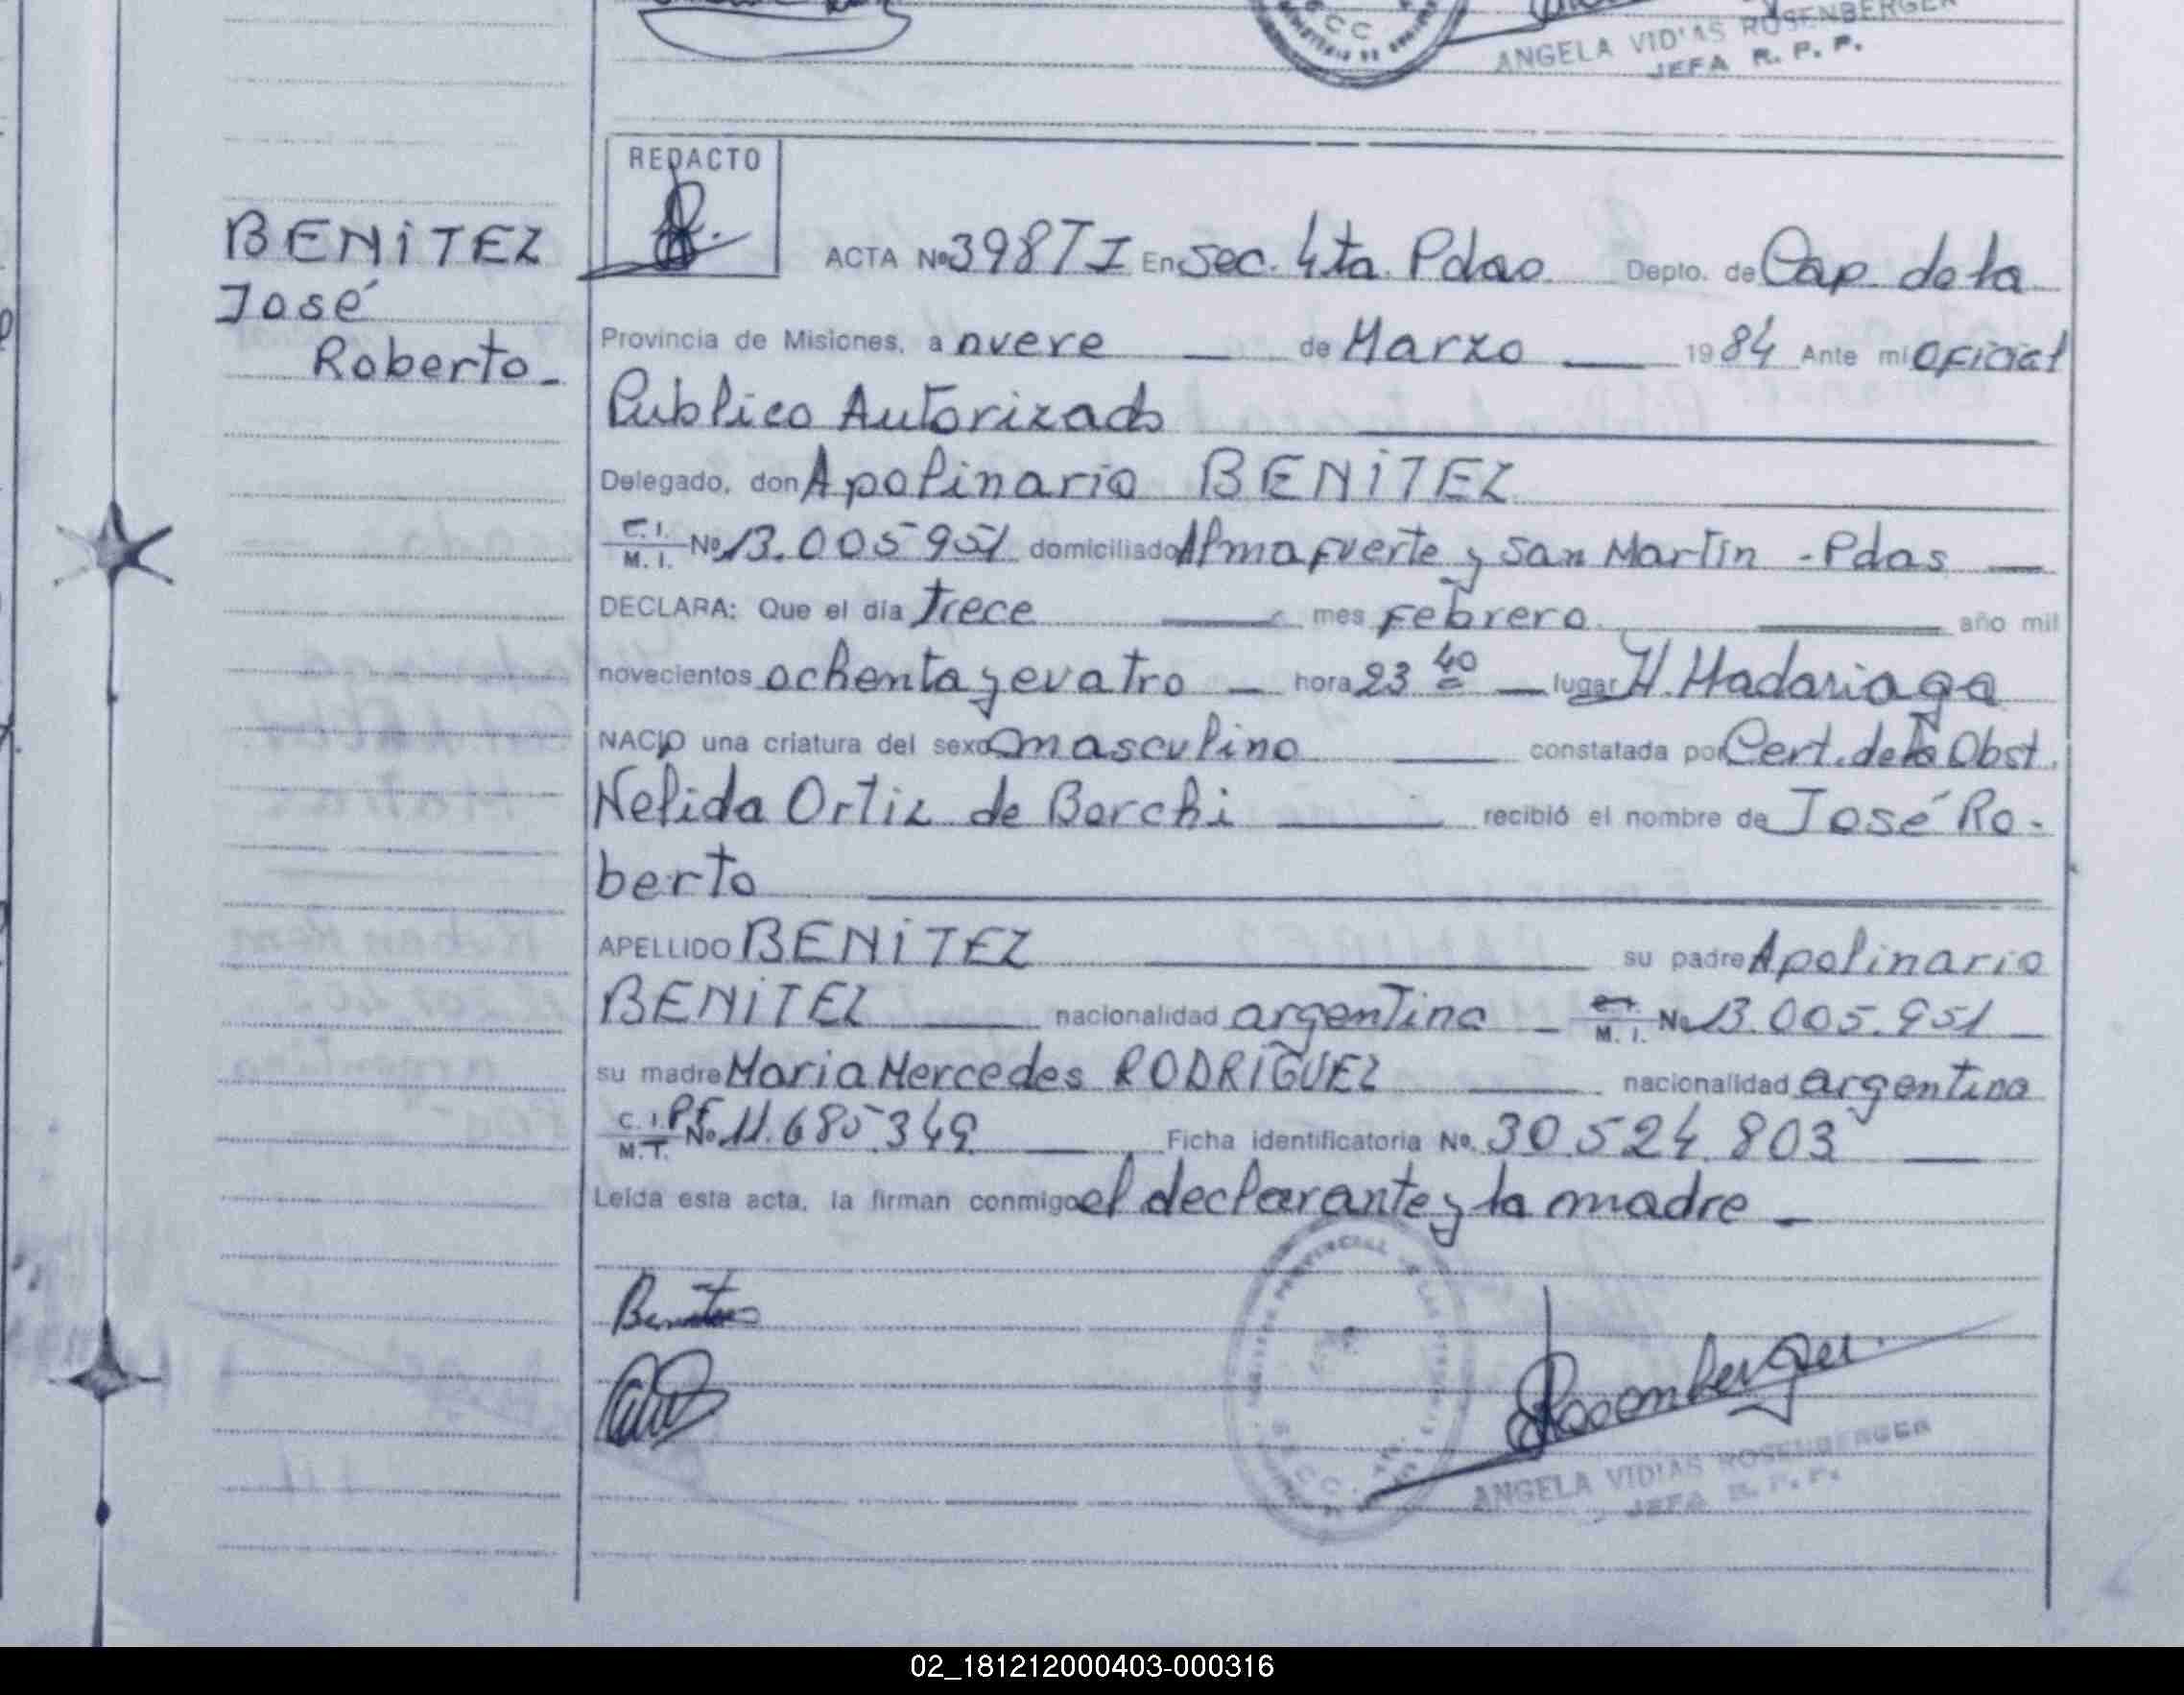 ANGELA VIDIAS ROSENBERGER
JEFA R. P. P.
REDACTO
BENITEZ
José
Roberto -
ACTA Nº 398 T I En Sec. 4ta. Pdas. Depto. de Cap. de la
Provincia de Misiones, a nueve — de Marzo — 1984 Ante mi Oficial
Publico Autorizado
Delegado, don Apolinario BENITEZ
C. I. M. I. Nº 13.005.951 domiciliado Almafuerte y San Martin - Pdas —
DECLARA: Que el día trece — mes febrero — año mil
novecientos ochenta y cuatro — hora 23 40 — lugar H. Madariaga
NACIO una criatura del sexo masculino — constatada por Cert. de la Obst.
Nelida Ortiz de Borchi — recibió el nombre de José Ro-
berto
APELLIDO BENITEZ — su padre Apolinario
BENITEZ — nacionalidad argentina — C. I. M. I. Nº 13.005.951 —
su madre Maria Mercedes RODRIGUEZ — nacionalidad argentina
C. I. M. I. P.F. Nº 11.685.349 — Ficha identificatoria Nº. 30.524.803 —
Leída esta acta, la firman conmigo el declarante y la madre —
Benitez
Rosemberger
ANGELA VIDIAS ROSENBERGER
JEFA R. P. P.
02_181212000403-000316